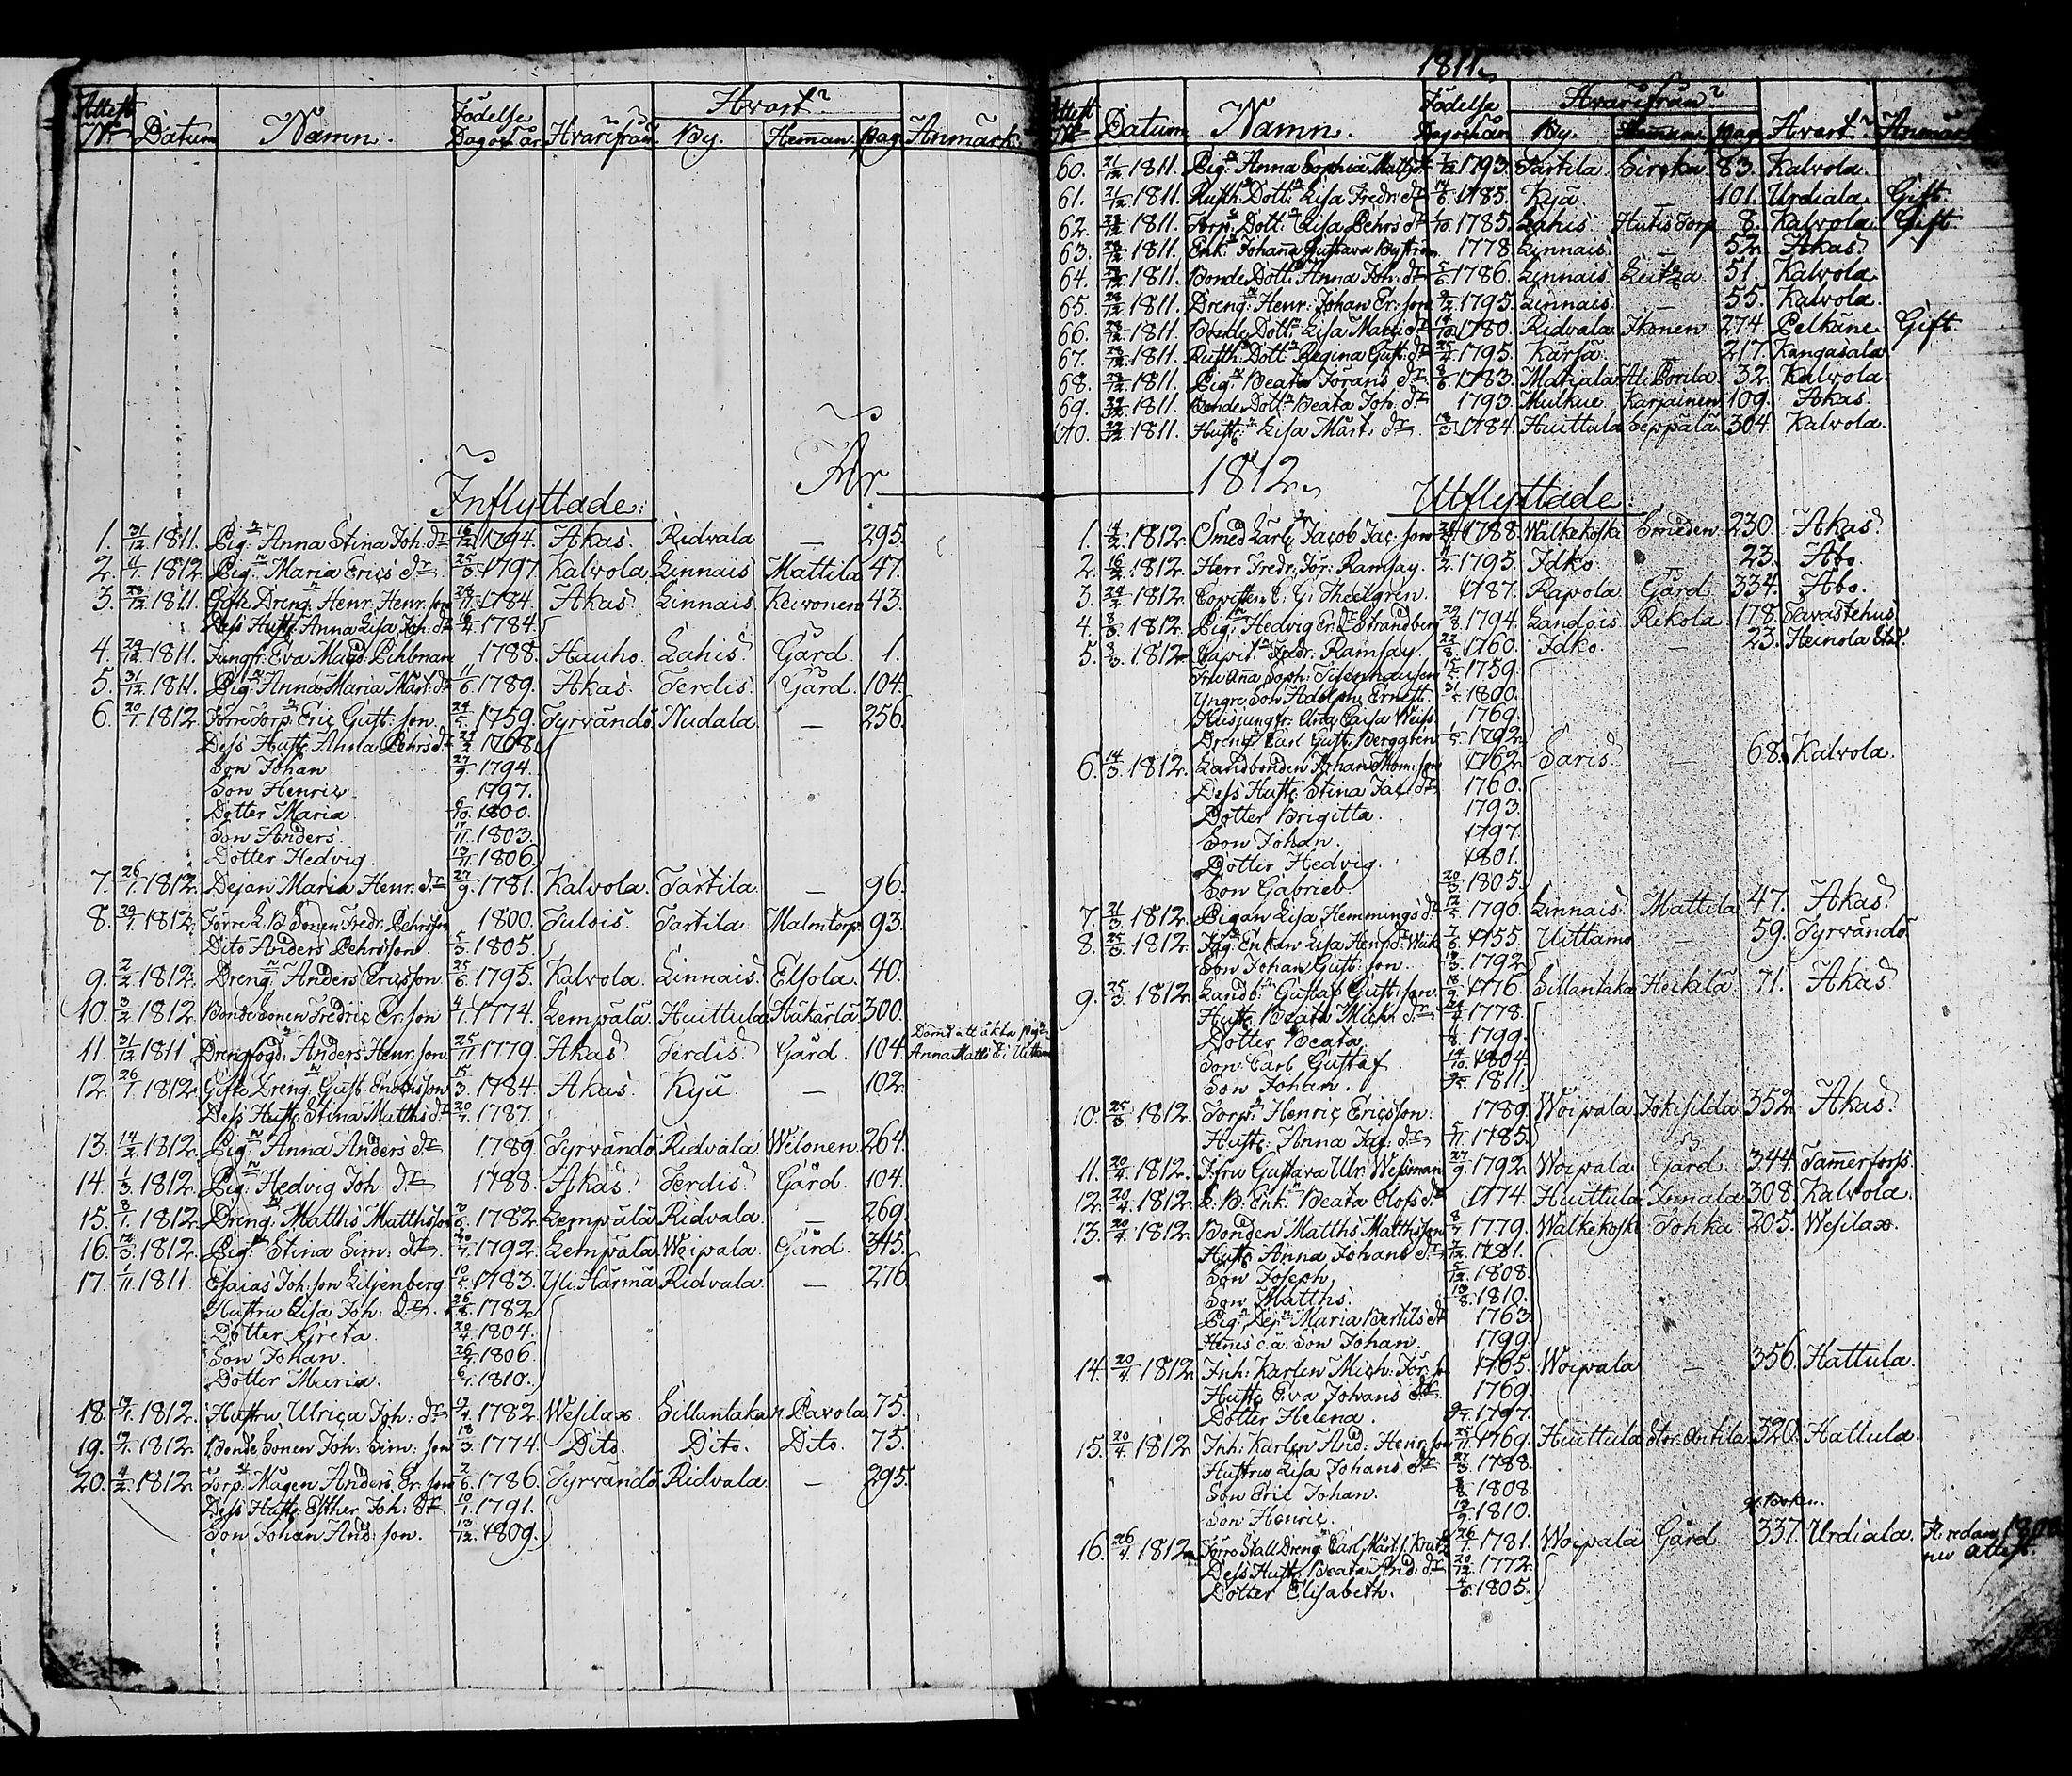 Attest N:r Datum Namn. Födelse Dag och år. Hvarifrån Hvart? By. Hemman. Pag. Anmärk:
År
Inflyttade:
1. 31/12 1811. Pig:n Anna Stina Joh: dr 16/12 1794. Akas. Ridvala — 295.
2. 11/1 1812. Pig:n Maria Erics dr 25/3 1797. Kalvola Linnais Mattila 47.
3. 28/12 1811. Gifte Dreng:n Henr. Henr: son 28/11 1784. Akas. Linnais Keivonen 43.
Dess Hust: Anna Lisa Joh: dr 1784.
4. 29/12 1811. Jungfr. Eva Magd. Pihlman 1788. Hauho. Lahis. Gård. 1.
5. 31/12 1811. Pig:n Anna Maria Mårt: dr 11/6 1789. Akas. Terdis. Gård. 104.
6. 20/1 1812. Förre Torp:n Eric Gust: son. 24/5 1759. Tyrvändö. Nudala. — 256.
Dess Hust: Anna Pehrs dr 24/2 1768.
Son Johan. 27/9 1794.
Son Henric. 1797.
Dotter Maria. 6/10 1800.
Son Anders. 17/11 1803.
Dotter Hedvig. 13/11 1806.
7. 26/1 1812. Dejan Maria Henr: dr 27/9 1781. Kalvola. Tartila. — 96.
8. 29/1 1812. Förre L. B. Sonen Fredr. Pehrsson 1800. Tulois. Tartila. Malmtorp. 93.
Dito Anders Pehrsson. 5/3 1805.
9. 2/2 1812. Dreng:n Anders Ericsson 25/6 1795. Kalvola. Linnais. Elsola. 40.
10. 3/2 1812. Bonde Sonen Fredric Er: son 4/1 1774. Lempälä. Huittula Hakärlä 300.
11. 31/12 1811. Drengfogd:n Anders Henr: son. 25/11 1779. Akas. Terdis. Gård. 104. Dömd att äkta pig:n Anna Matts dr i Uittamo
12. 26/1 1812. Gifte Dreng:n Gust. Enochsson 15/3 1784. Akas. Kyä. — 102.
Dess Hust: Stina Matths dr 20/7 1787.
13. 14/2 1812. Pig:n Anna Anders dr 1789. Tyrvändö Ridvala Wilonen 264.
14. 1/3 1812. Pig:n Hedvig Joh: dr 1788. Akas. Terdis. Gård. 104.
15. 8/1 1812. Dreng:n Matths Matthsson 1782. Lempälä Ridvala. — 269.
16. 12/3 1812. Pig:n Stina Sim: dr. 1792. Lempälä. Woipala. Gård. 345.
17. 1/11 1811. Esaias Joh: son Liljenberg. 10/5 1783. Yli Härmä Ridvala. — 276
Hustru Lisa Joh: dr. 26/8 1782
Dotter Greta. 20/4 1804.
Son Johan. 1806.
Dotter Maria. 1810.
18. 1812. Hustru Ulrica Joh: dr 1782. Wesilax. Sillantaka n. Pavola 75.
19. 1812. Bonde Sonen Joh: Sim: son 18/3 1774. Dito. Dito. Dito. 75.
20. 4/2 1812. Torp: Mågen Anders Er: son 2/6 1786. Tyrvändö. Ridvala. — 295.
Dess Hust: Esther Joh: dr. 10/1 1791.
Son Johan And: son. 13/12 1809.
1811.
Attest N:r Datum Namn. Födelse Dag och år Hvarifrån? By. Hemman. Pag. Hvart? Anmärk
60. 21/12 1811. Pig:n Anna Sophia Matths dr 1793. Tartila. Sirekn 83. Kalvola.
61. 21/12 1811. Rusth: Dott:n Lisa Fredr: dr 14/6 1785. Kyä. — 101. Urdiala. Gift.
62. 28/12 1811. Torp: Dott:n Lisa Pehrs dr 1785. Lahis. Hutis Torp 8. Kalvola. Gift
63. 28/12 1811. Enk:n Johana Gustava Byström 1778. Linnais. — 52. Akas.
64. 28/12 1811. Bonde Dott:n Anna Joh: dr 5/6 1786. Linnais. Leitza 51. Kalvola.
65. 28/12 1811. Dreng:n Henr: Johan Er: son 1795. Linnais. — 55. Kalvola.
66. 28/12 1811. Bonde Dott:n Lisa Matts dr 14/10 1780. Ridvala Ikonen 274. Pelkäne. Gift
67. 28/12 1811. Rusth: Dott:n Regina Gust: dr 25/4 1795. Kärsä. — 217. Kangasala
68. 1811. Pig:n Beata Jörans dr. 8/6 1783. Matjala Ali Porila. 32. Kalvola.
69. 1811. Bonde Dott:n Beata Joh: dr 1793. Mulkue Karjainen 109. Akas.
70. 1811. Hust:n Lisa Mårt: dr. 13/3 1784. Huittula Seppälä 304. Kalvola.
1812.
Utflyttade.
1. 14/2 1812. Smed Karl:n Jacob Jac: son 1788. Walkekoski Smeden 230. Akas.
2. 16/2 1812. Herr Fredr. Jör. Ramsay. 1795. Idko. 23. Åbo.
3. 24/2 1812. Copisten C. G. Theelgren. 1787. Rapola Gård. 334. Åbo.
4. 8/3 1812. Pig:n Hedvig Er: dr Strandberg 29/8 1794. Landois. Rikola 178. Tavastehus
5. 8/3 1812. Capit:n Fredr. Ramsay. 22/8 1760. Idko. — 23. Heinola Stad.
Fru Ana Soph: Tisenhausen 15/5 1759.
Yngre Son Adolph Ernest. 31/5 1800.
Husjungfr: Anna Caisa Weiss. 1769.
Dreng:n Carl Gust. Berggren. 1/5 1792.
6. 14/3 1812. Landbonden Johan Thom: son 1762. Saris. — 68. Kalvola.
Dess Hust: Stina Jac: dr 1760.
Dotter Brigitta. 1793.
Son Johan. 1797.
Dotter Hedvig. 1801.
Son Gabriel 20/3 1805.
7. 21/3 1812. Pigan Lisa Hemmings dr 12/5 1796. Linnais Mattila 47. Akas.
8. 25/3 1812. Enkan Lisa Henr: dr Wick 7/6 1755. Uittamo — 59. Tyrvändö
Son Johan Gust: son. 1792.
9. 25/3 1812. Landb:n Gustaf Gust: son. 1776. Sillantaka Heikilä. 71. Akas.
Hust: Beata Mich: dr 24/4 1778.
Dotter Beata. 11/8 1799.
Son Carl Gustaf. 14/10 1804.
Son Johan. 1811.
10. 25/3 1812. Torp:n Henric Ericsson. 1789. Woipala Jokisilda 352. Akas.
Hust: Anna Jac: dr. 5/11 1785.
11. 20/4 1812. Jfru Gustava Ulr. Wessman 27/9 1792. Woipala Gård 344. Tamerfors.
12. 20/4 1812. L: B: Enk:n Beata Olofs dr 1774. Huittula Innala 308. Kalvola.
13. 20/4 1812. Bonden Matths Matthsson 8/7 1779. Walkekoski Johka 205. Wesilax.
Hust: Anna Johans dr 7/12 1781.
Son Joseph. 5/12 1808.
Son Matths. 13/8 1810.
Pig:n, Dej:n Maria Bertils dr 1763.
Hanes o. ä. Son Johan. 1799.
14. 20/4 1812. Inh: Karlen Mich: Jör: son 1765. Woipala — 356. Hattula.
Hust: Eva Johans dr. 1769.
Dotter Helena. 1797.
15. 20/4 1812. Inh: Karlen And: Henr: son 25/11 1769. Huittula Stor Antila 320. Hattula.
Hustru Lisa Johans dr 27/3 1788.
Son Eric Johan. 1808.
Son Henric. 13/9 1810.
16. 26/4 1812. Förre Stall Dreng:n Carl Mårt. s. 26/7 1781. Woipala Gård 337. Urdiala. Fl. redan utan attest.
Dess Hust: Beata And: dr 20/12 1772.
Dotter Elisabeth. 4/6 1805.